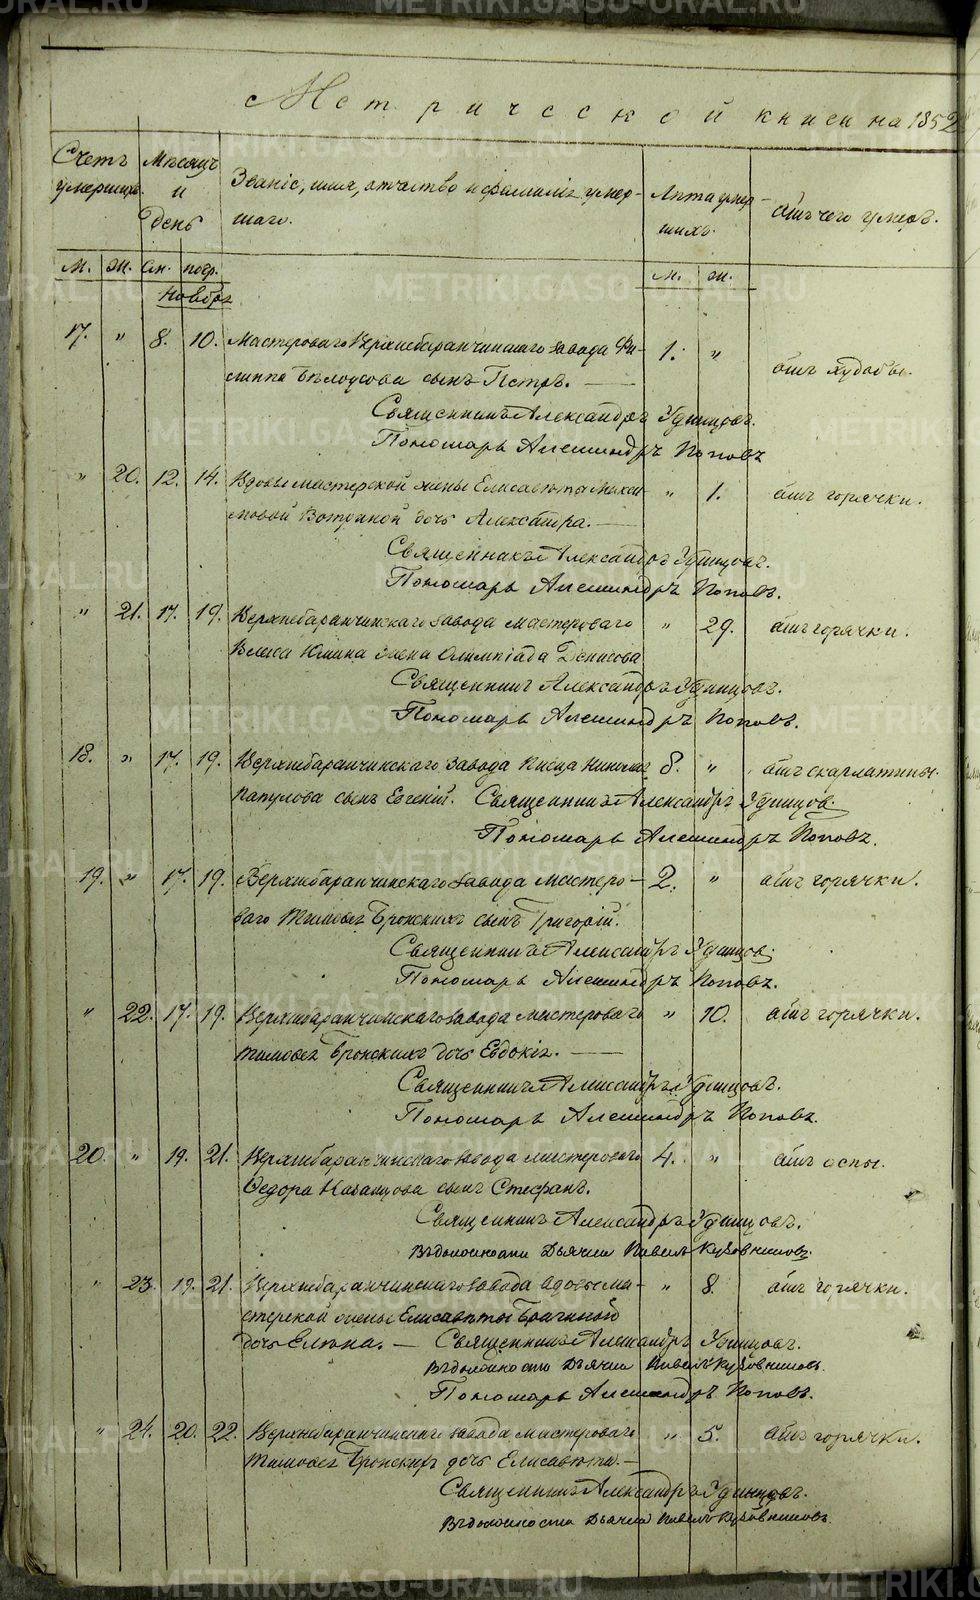 Метрической книги на 1852
Счетъ умершихъ. Мѣсяцъ и день Званіе, имя, отчество и фамилія умершаго. Лѣта умершихъ. Отъ чего умеръ.
М. Ж. См. погр. М. Ж.
Ноябрь
17. " 8. 10. Мастероваго Верхнебаранчинскаго завода Фи- 1. " отъ худобы.
липпа Бѣлоусова сынъ Петръ.
Священникъ Александръ Удинцовъ.
Пономарь Александръ Поповъ
" 20. 12. 14. Вдовы мастерской жены Елисаветы Макси- " 1. отъ горячки.
мовой дочь Александра.
Священникъ Александръ Удинцовъ.
Пономарь Александръ Поповъ.
" 21. 17. 19. Верхнебаранчинскаго завода мастероваго " 29. отъ горячки.
Юшина жена Олимпіада Денисова
Священникъ Александръ Удинцовъ.
Пономарь Александръ Поповъ.
18. " 17. 19. Верхнебаранчинскаго завода писца Николая 8. " отъ скарлатины.
Папулова сынъ Евгеній. Священникъ Александръ Удинцовъ.
Пономарь Александръ Поповъ.
19. " 17. 19. Верхнебаранчинскаго завода мастеро- 2. " отъ горячки.
ваго Тимофея Бронскихъ сынъ Григорій.
Священникъ Александръ Удинцовъ.
Пономарь Александръ Поповъ.
" 22. 17. 19. Верхнебаранчинскаго завода мастероваго " 10. отъ горячки.
Тимофея Бронскихъ дочь Евдокія.
Священникъ Александръ Удинцовъ.
Пономарь Александръ Поповъ.
20. " 19. 21. Верхнебаранчинскаго завода мастероваго 4. " отъ оспы.
Ѳедора Казанцова сынъ Стефанъ.
Священникъ Александръ Удинцовъ.
Въ должности Дьячка Павелъ Кузовниковъ.
" 23. 19. 21. Верхнебаранчинскаго завода вдовы ма- " 8. отъ горячки.
стерской жены Елисаветы Брагиной
дочь Елена. — Священникъ Александръ Удинцовъ.
Въ должности Дьячка Павелъ Кузовниковъ.
Пономарь Александръ Поповъ.
" 24. 20. 22. Верхнебаранчинскаго завода мастероваго " 5. отъ горячки.
Тимофея Бронскихъ дочь Елисавета. —
Священникъ Александръ Удинцовъ.
Въ должности Дьячка Павелъ Кузовниковъ.
METRIKI.GASO-URAL.RU